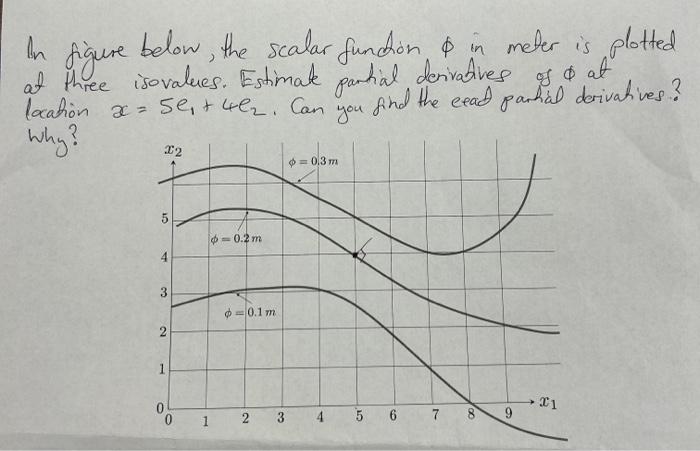 In figure below, the scalar function ϕ in meter is plotted
at three isovalues. Estimate partial derivatives of ϕ at
location x = 5e₁ + 4e₂. Can you find the exact partial derivatives?
Why?
x₂
ϕ = 0.3 m
5
ϕ = 0.2 m
4
3
ϕ = 0.1 m
2
1
0
x₁
0 1 2 3 4 5 6 7 8 9